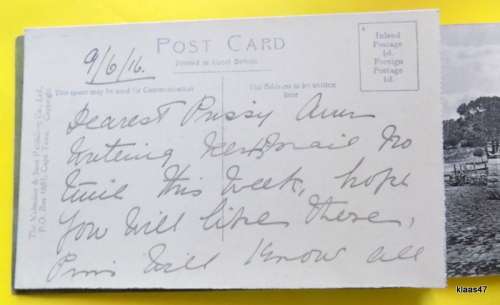 9/6/16.
POST CARD
Printed in Great Britain
This space may be used for Communication
The Address to be written
here
Inland
Postage
½d.
Foreign
Postage
1d.
The Valentine & Sons Publishing Co., Ltd.,
P.O. Box 1685, Cape Town. Copyright.
Dearest Pussy Ann
Writing next mail No
time this week, hope
you will like these,
Pmi will know all
klaas47